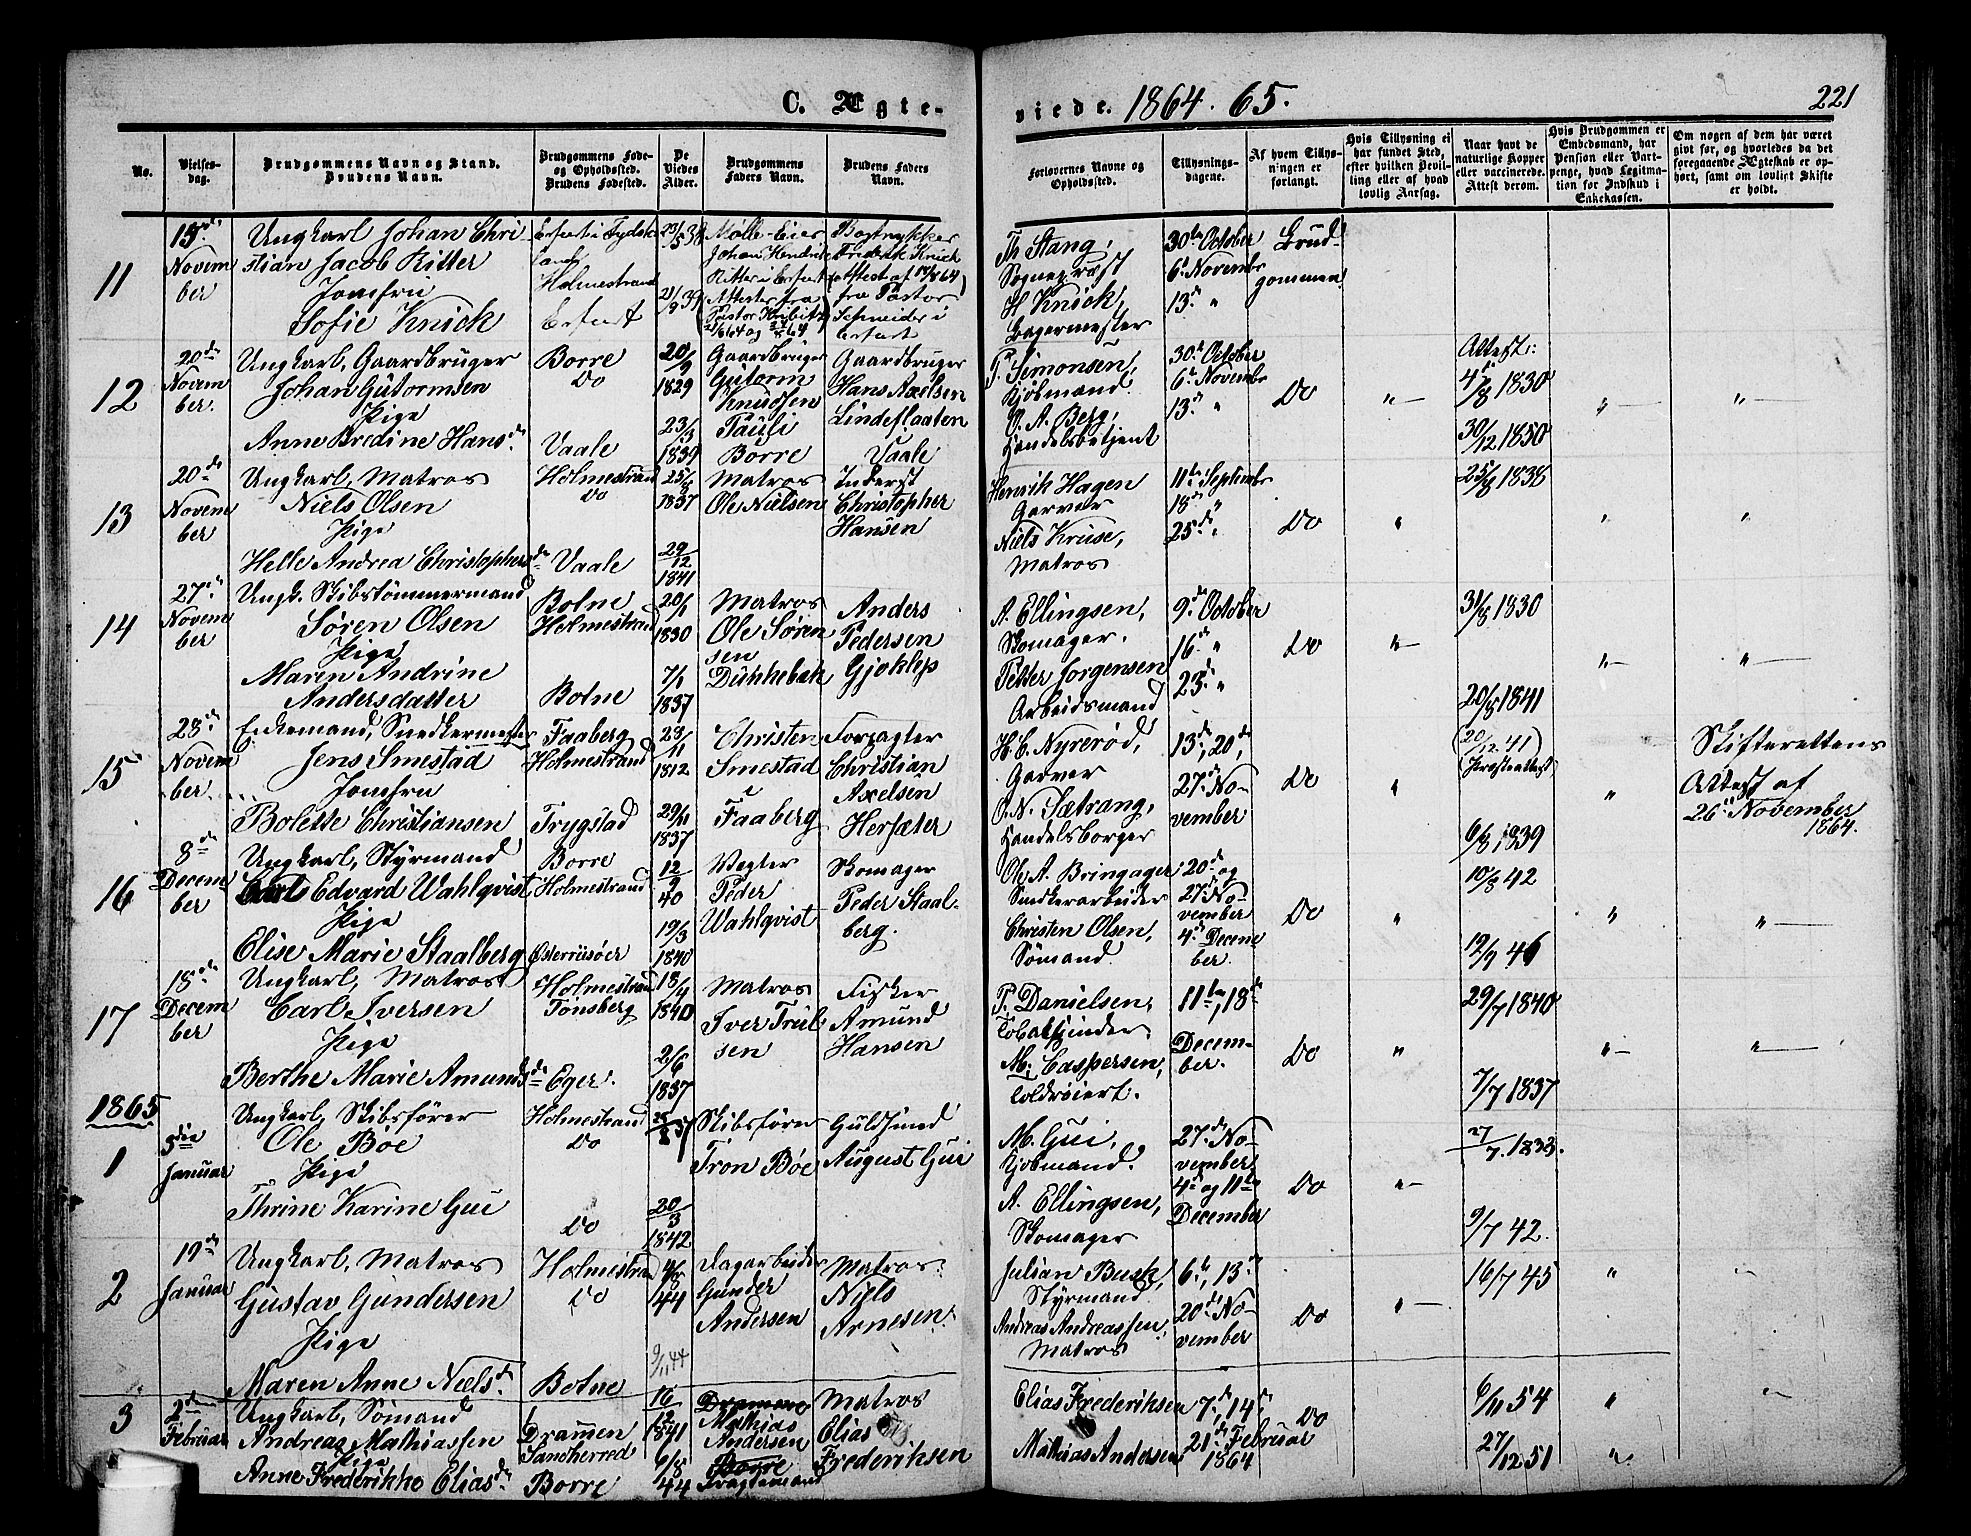 C. Ægte-
viede. 1864. 65.
221
No.
Vielses-
dag.
Brudgommens Navn og Stand.
Brudens Navn.
Brudgommens Føde-
og Opholdssted.
Brudens Fødested.
De
Viedes
Alder.
Brudgommens
Faders Navn.
Brudens Faders
Navn.
Forlovernes Navne og
Opholdssted.
Tillysnings-
dagene.
Af hvem Tillys-
ningen er
forlangt.
Hvis Tillysning ei
har fundet Sted,
efter hvilken Bevil-
ling eller af hvad
lovlig Aarsag.
Naar havt de
naturlige Kopper
eller vaccinerede.
Attest derom.
Hvis Brudgommen er
Embedsmand, har
Pension eller Vart-
penge, hvad Legitima-
tion for Indskud i
Enkekassen.
Om nogen af dem har været
givt for, og hvorledes da det
foregaaende Ægteskab er op-
hørt, samt om lovligt Skifte
er holdt.
11
Novem
ber
Ungkarl Johan Chri
stian Jacob Ritter
Jomfru
Sofie Knick
Holmestrand
Erfurt
Mølle-Eier
Johan Hendrik
Ritter i Erfurt
Attester fra
Bogtrykker
Frederik Knick
fra Pastor
Schneider i
Erfurt
Th Stang,
Sognepræst
H Knick,
Bagermester
30te October
6te Novembr
13de "
Brud-
gommen
12
20de
Novem
ber.
Ungkarl, Gaardbruger
Johan Gutormsen
Pige
Anne Bredine Hansd.
Borre
Do
Vaale
20/9
1829
23/3
1839
Gaardbruger
Gutorm
Knudsen
Pauli
Borre
Gaardbruger
Hans Axelsen
Lindeflaaten
Vaale
P. Simonsen,
Kjøbmand.
O. A. Berg,
Handelsbetjent
30te October
6te Novembr
13de "
Do
"—
Attest:
4/8 1830
30/12 1850
"—
"—
13
20de
Novem
ber
Ungkarl, Matros
Niels Olsen
Pige
Helle Andrea Christophersd.
Holmestrand
Do
Vaale
25/8
1837
29/12
1841
Matros
Ole Nielsen
Inderst
Christopher
Hansen
Henrik Hagen
Garver
Niels Kruse,
Matros
11te Septembr
18de "
25de "
Do
"
25/8 1838
"
"
14
27de
Novem
ber
Ungk. Skibstømmermand
Søren Olsen
Pige
Maren Andrine
Andersdatter
Botne
Holmestrand
Botne
20/1
1830
7/1
1837
Matros
Ole Søren
sen
Dukkebak
Anders
Pedersen
Gjoklep
A. Ellingsen,
Skomager.
Petter Jorgensen
Arbeidsmand
9de October
16de "
23de "
Do
"—
31/8 1830
20/8 1841
"—
"—
15
28de
Novem
ber
Enkemand, Snedkermester
Jens Smestad
Jomfru
Bolette Christiansen
Faaberg
Holmestrand
Trygstad
23/11
1812
29/11
1837
Christen
Smestad
i
Faaberg
Forpagter
Christian
Axelsen
Hersæter
H. C. Nyrerød,
Garver
O. N. Sætrang,
Handelsborger
13de, 20de,
27de No-
vember
Do
"
(20/12 41)
Præsteattest
6/8 1839
"
Skifterettens
Attest af
26de November
1864.
16
8de
Decem
ber
Ungkarl, Styrmand
Carl Edvard Wahlqvist
Pige
Elise Marie Staalberg
Borre
Holmestrand
Østerriisøer
12/9
40
19/3
1840
Vegter
Peder
Wahlqvist
Skomager
Peder Staal-
berg.
Ole A. Bringager
Snedkerarbeider
Christen Olsen,
Sømand.
20de og
27de No-
vember
4de Decem
ber.
Do
"
10/8 42
19/7 46
"
"—
17
18de
Decem
ber
Ungkarl, Matros
Carl Iversen
Pige
Berthe Marie Amundsd.
Holmestrand
Tønsberg
Eger.
18/4
1840
2/6
1837
Matros
Iver Truls
sen
Fisker
Amund
Hansen
P. Danielsen,
Tobakspinder
M. Caspersen,
Toldroiert.
11te, 18de
Decem-
ber.
Do
"
29/7 1840
7/7 1837
"—
"—
1865
1
5die
Januar
Ungkarl, Skibsfører
Ole Boe
Pige
Thrine Karine Gui
Holmestrand
Do
Do
20/3
1842
Skibsfører
Tron Bøe
Guldsmed
August Gui
M. Gui,
Kjøbmand.
A. Ellingsen,
Skomager
27de No-
vember
4de og 11te
December
Do
"—
27/7 1833.
9/7 42.
2
19de
Januar
Ungkarl, Matros
Gustav Gundersen
Pige
Maren Anne Nielsd.
Holmestrand
Do
Botne
4/8
44
9/11 44
Dagarbeider
Gunder
Andersen
Matros
Niels
Arnesen.
Julian Busk,
Styrmand
Andreas Andreassen,
Matros
6te, 13de
20de No-
vember
Do
"—
16/7 45
"
"—
3
2den
Februar
Ungkarl, Sømand
Andreas Mathiassen
Pige
Anne Frederikke Eliasd.
Dramen
Sandherred
Borre
16/12
1841
6/8
44
Mathias
Andersen
Borre
Fragtemand
Matros
Elias
Frederiksen
Elias Frederiksen
Mathias Andersen
7de, 14de,
21de Februar
1864
Do
6/11 54
27/12 51
"
"—
"